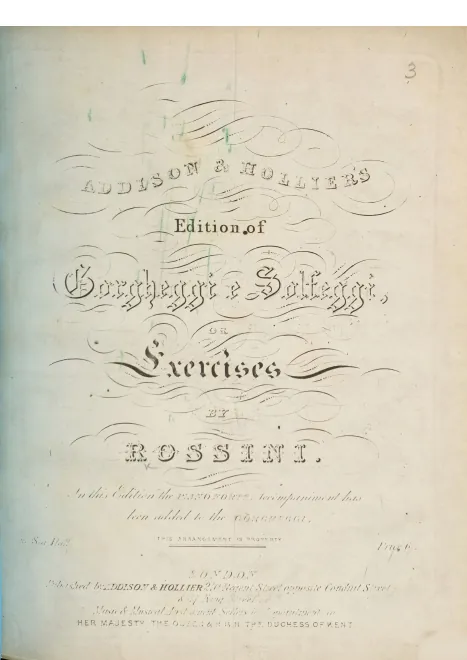 3
ADDISON & HOLLIER'S
Edition of
Gorgheggi e Solfeggi,
OR
Exercises
BY
ROSSINI.
In this Edition the PIANOFORTE Accompaniment has
been added to the GORGHEGGI.
THIS ARRANGEMENT IS PROPERTY
Price 6
LONDON
Published by ADDISON & HOLLIER, Regent Street, opposite Conduit Street
Music & Musical Instrument Sellers
HER MAJESTY THE QUEEN & H.R.H. THE DUCHESS OF KENT